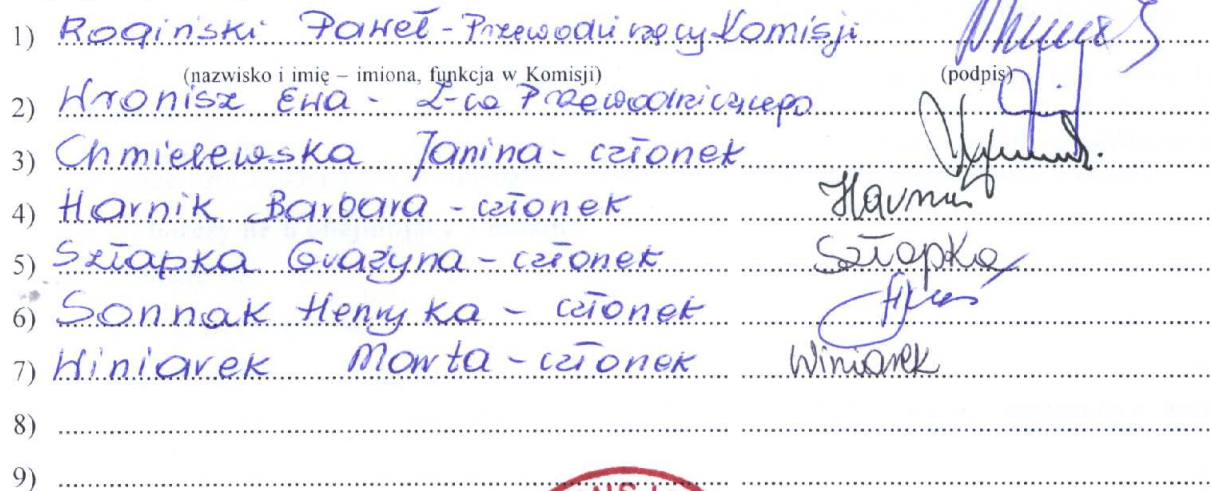 1) Rogiński Paweł - Przewodniczący Komisji
(nazwisko i imię – imiona, funkcja w Komisji) (podpis)
2) Wronisz Ewa - Z-ca Przewodniczącego
3) Chmielewska Janina - członek
4) Harnik Barbara - członek Harnik
5) Szłapka Grażyna - członek Szłapka
6) Sonnak Henryka - członek
7) Winiarek Marta - członek Winiarek
8)
9)